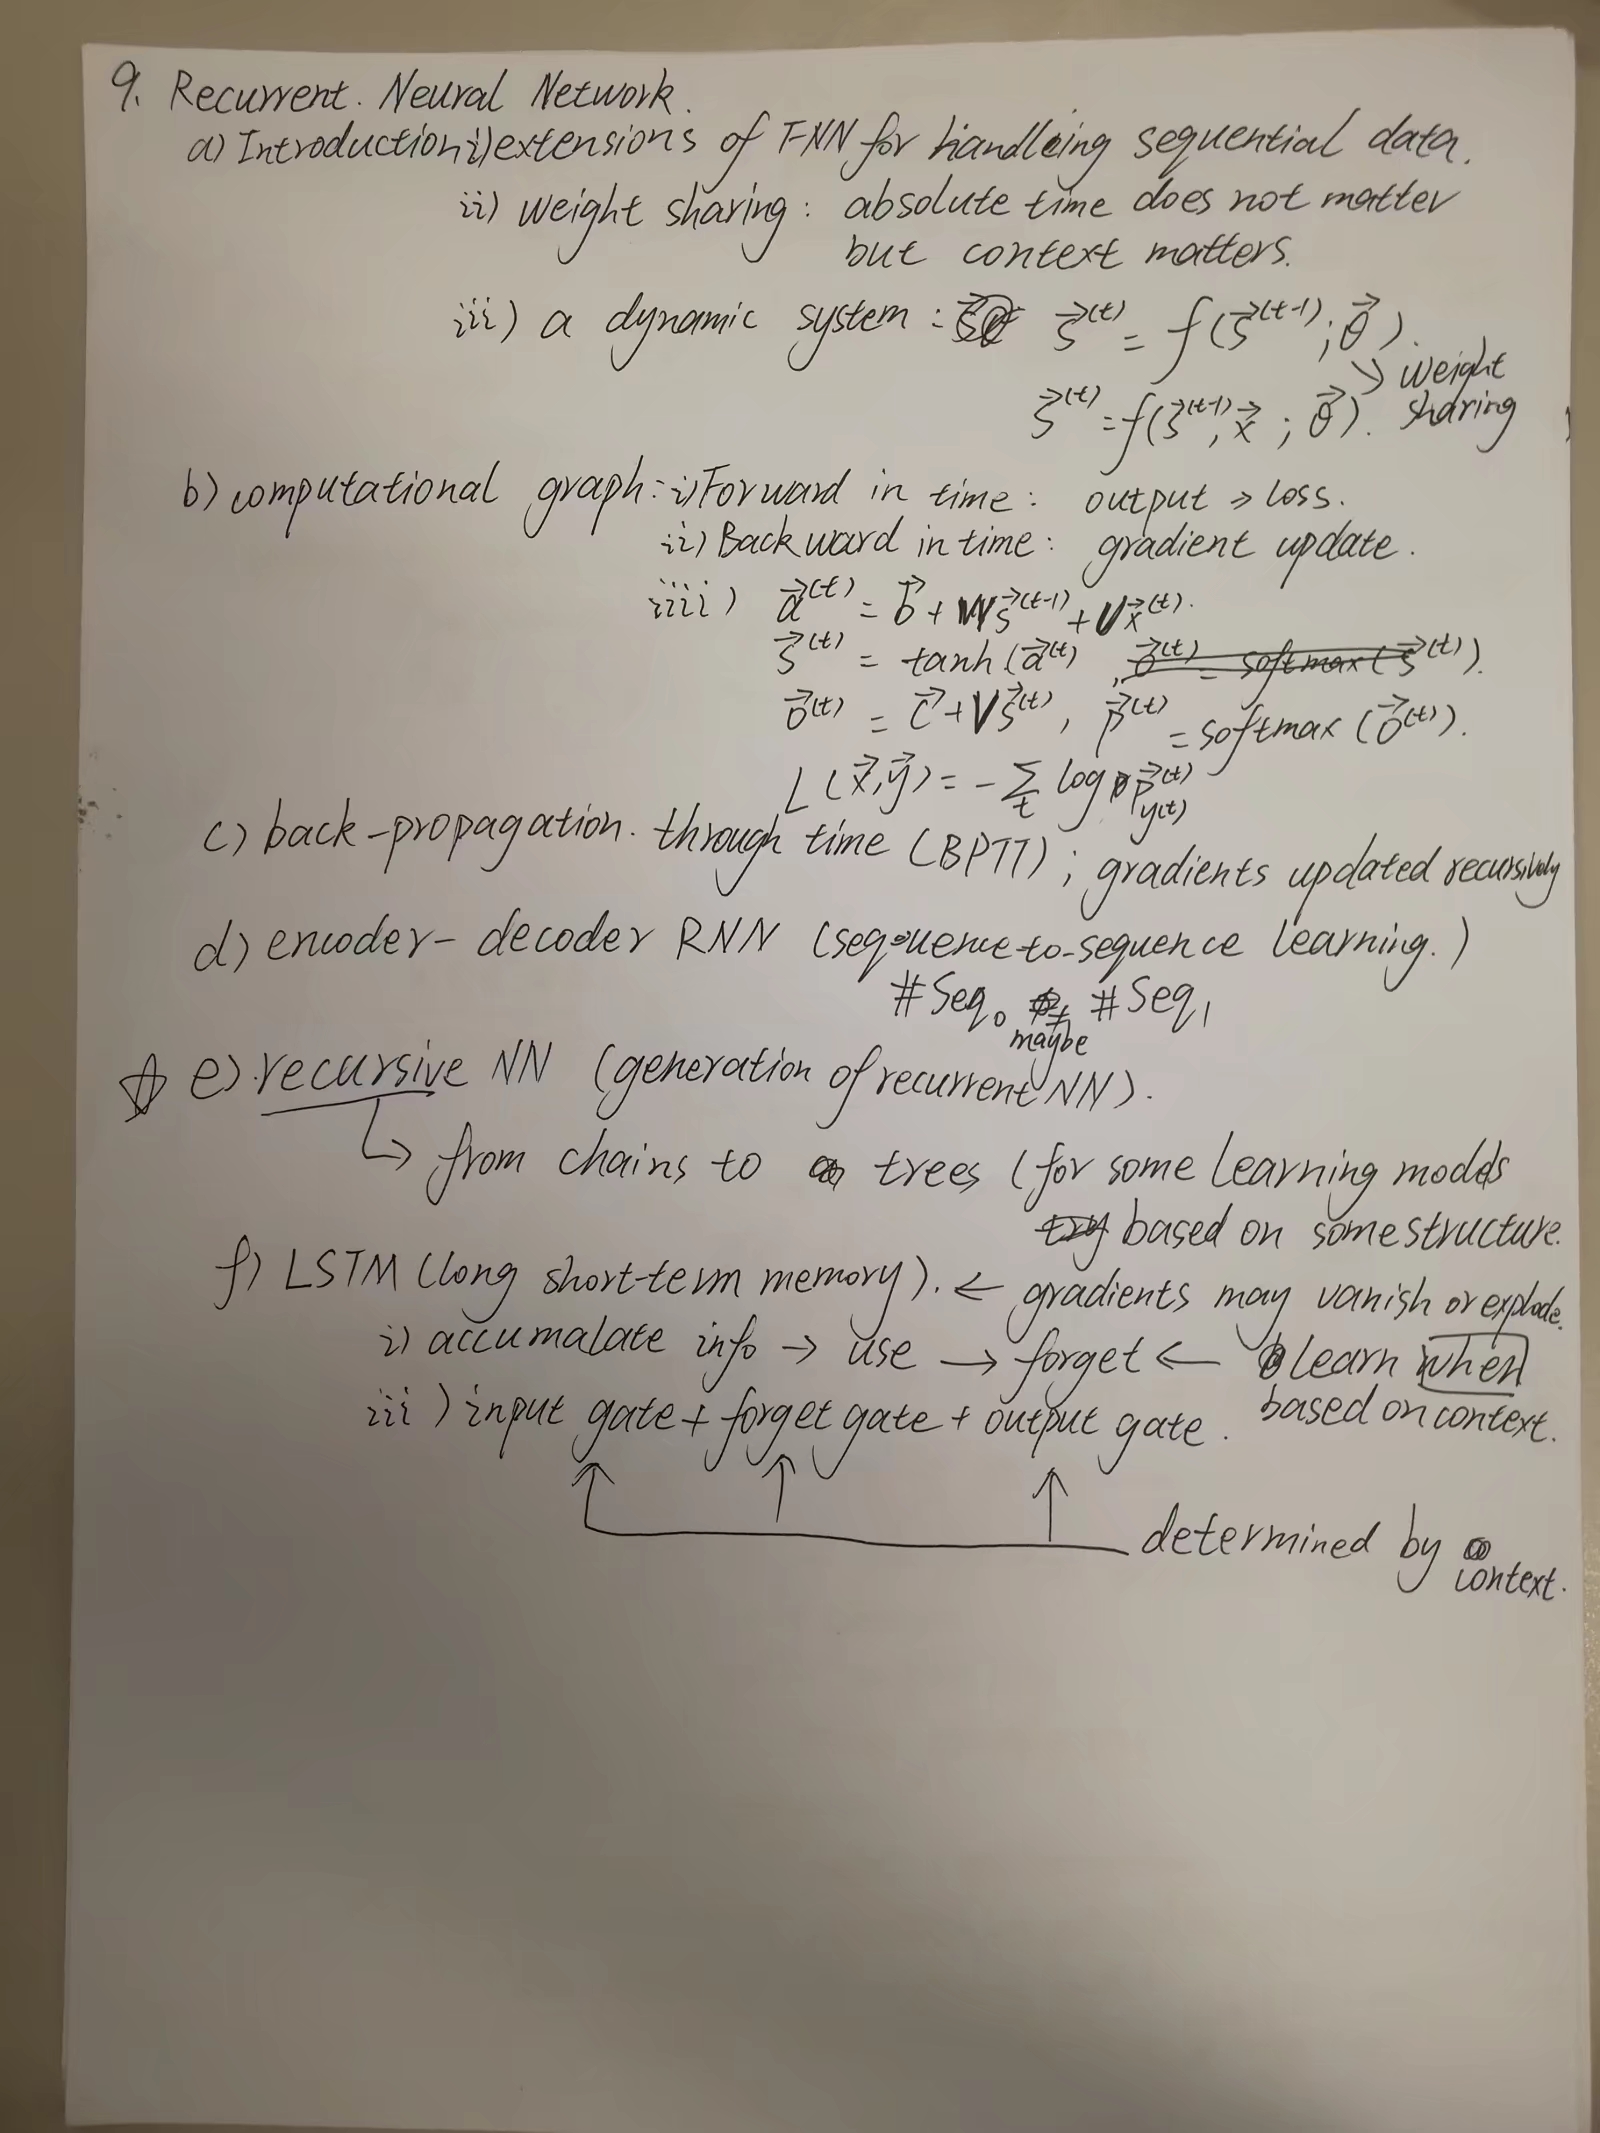 9. Recurrent. Neural Network.
a) Introduction i) extensions of FNN for handleing sequential data.
ii) weight sharing: absolute time does not matter
but context matters.
iii) a dynamic system: s⃗^(t) = f(s⃗^(t-1); θ⃗).
↘ weight
sharing
s⃗^(t) = f(s⃗^(t-1), x⃗; θ⃗).
b) computational graph: i) Forward in time: output → loss.
ii) Backward in time: gradient update.
iiii) a⃗^(t) = b⃗ + Ws⃗^(t-1) + Ux⃗^(t).
s⃗^(t) = tanh(a⃗^(t), o⃗^(t) = softmax(s⃗^(t)).
o⃗^(t) = c⃗ + Vs⃗^(t), p⃗^(t) = softmax(o⃗^(t)).
L(x⃗,y⃗) = -∑_t log p⃗^(t)_y(t)
c) back-propagation. through time (BPTT); gradients updated recursively
d) encoder-decoder RNN (sequence-to-sequence learning.)
#Seq₀ ≠ #Seq₁
maybe
☆ e) recursive NN (generation of recurrent NN).
↳ from chains to trees (for some learning models
try based on some structure.
f) LSTM (long short-term memory). ← gradients may vanish or explode.
i) accumalate info → use → forget ← learn when
based on context.
iii) input gate + forget gate + output gate.
determined by
context.